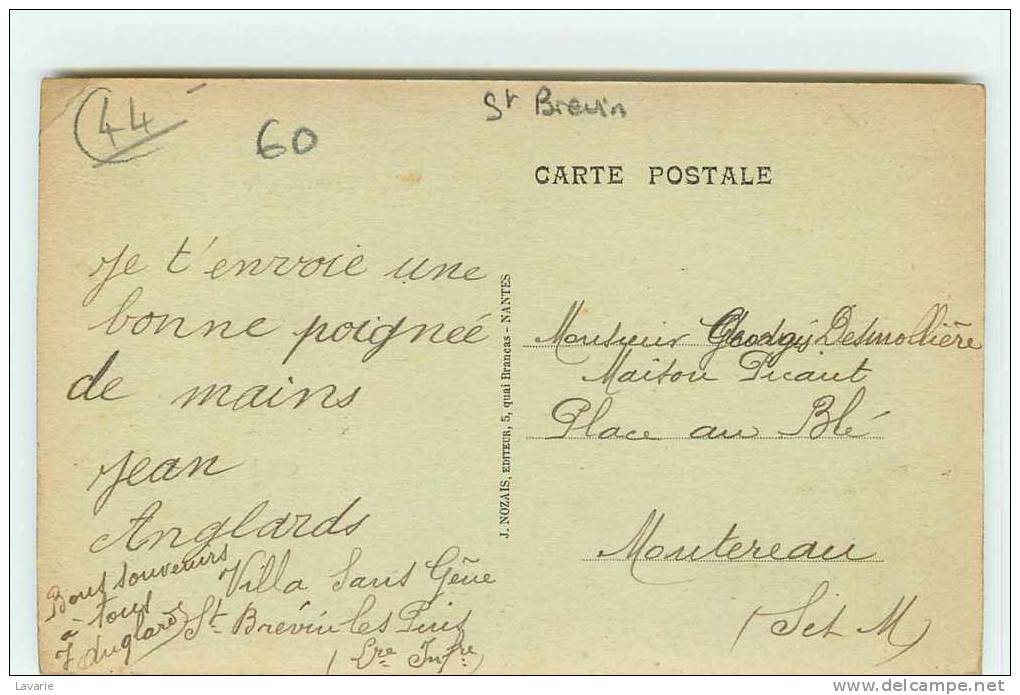 44
60
St Brevin
CARTE POSTALE
Je t'envoie une
bonne poignée
de mains
Jean
Anglards
Villa Sans Gêne
St Brévin les Pins
(Lre Infre)
Bons souvenirs
à tous
J Anglards
J. NOZAIS, EDITEUR, 5, quai Brancas - NANTES
Monsieur Desmollière
Maison Picaut
Place au Blé
Montereau
(S et M)
Lavarie
www.delcampe.net